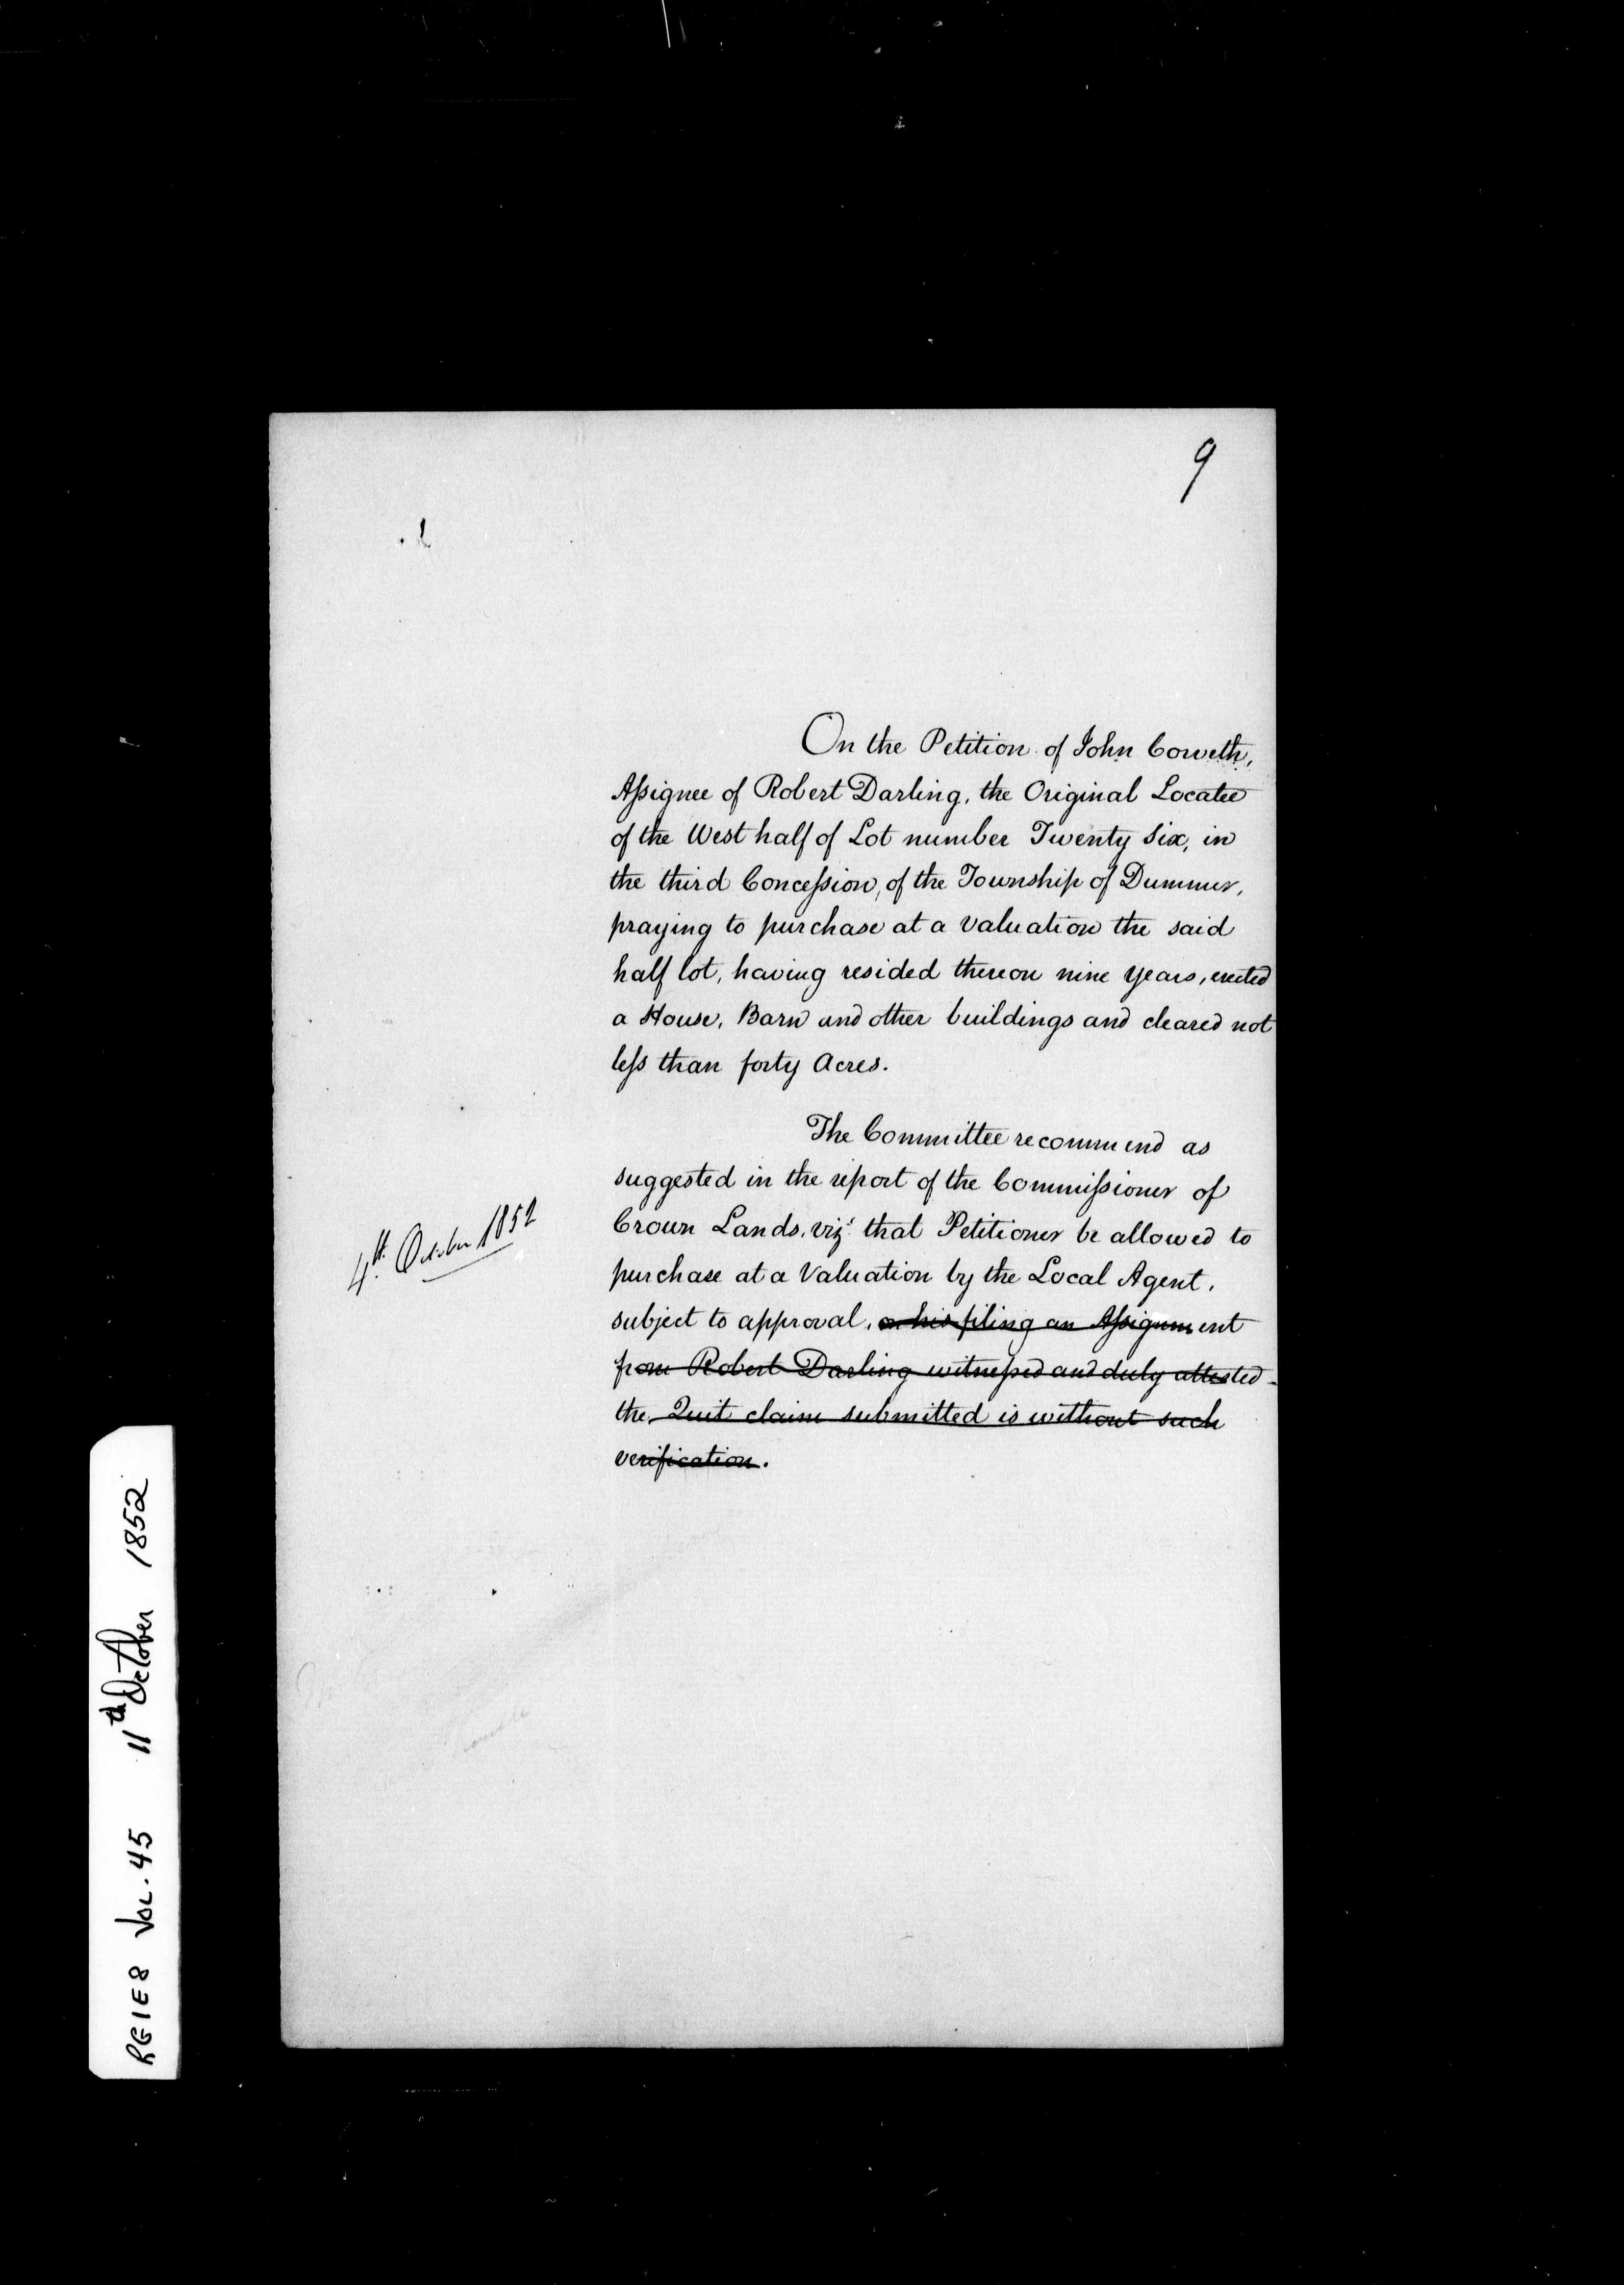 9
On the Petition of John Coweth,
Assignee of Robert Darling, the Original Locatee
of the West half of Lot number Twenty Six, in
the third Concession, of the Township of Dummer,
praying to purchase at a valuation the said
half lot, having resided thereon nine years, erected
a House, Barn and other buildings and cleared not
less than forty Acres.
The Committee recommend as
suggested in the report of the Commissioner of
Crown Lands, vizt that Petitioner be allowed to
purchase at a Valuation by the Local Agent,
subject to approval, on his filing an Assignment
from Robert Darling witnessed and duly attested -
the Quit claim submitted is without such
verification.
4th October 1852
RG1E8 VOL. 45 11th October 1852